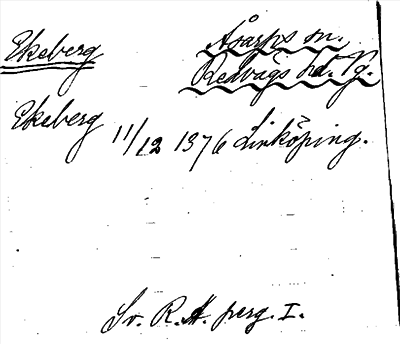 Ekeberg
Åsarps sn.
Redvägs hd. Vg.
Ekeberg 11/12 1376 Linköping.
Sv. R.A. perg. I.